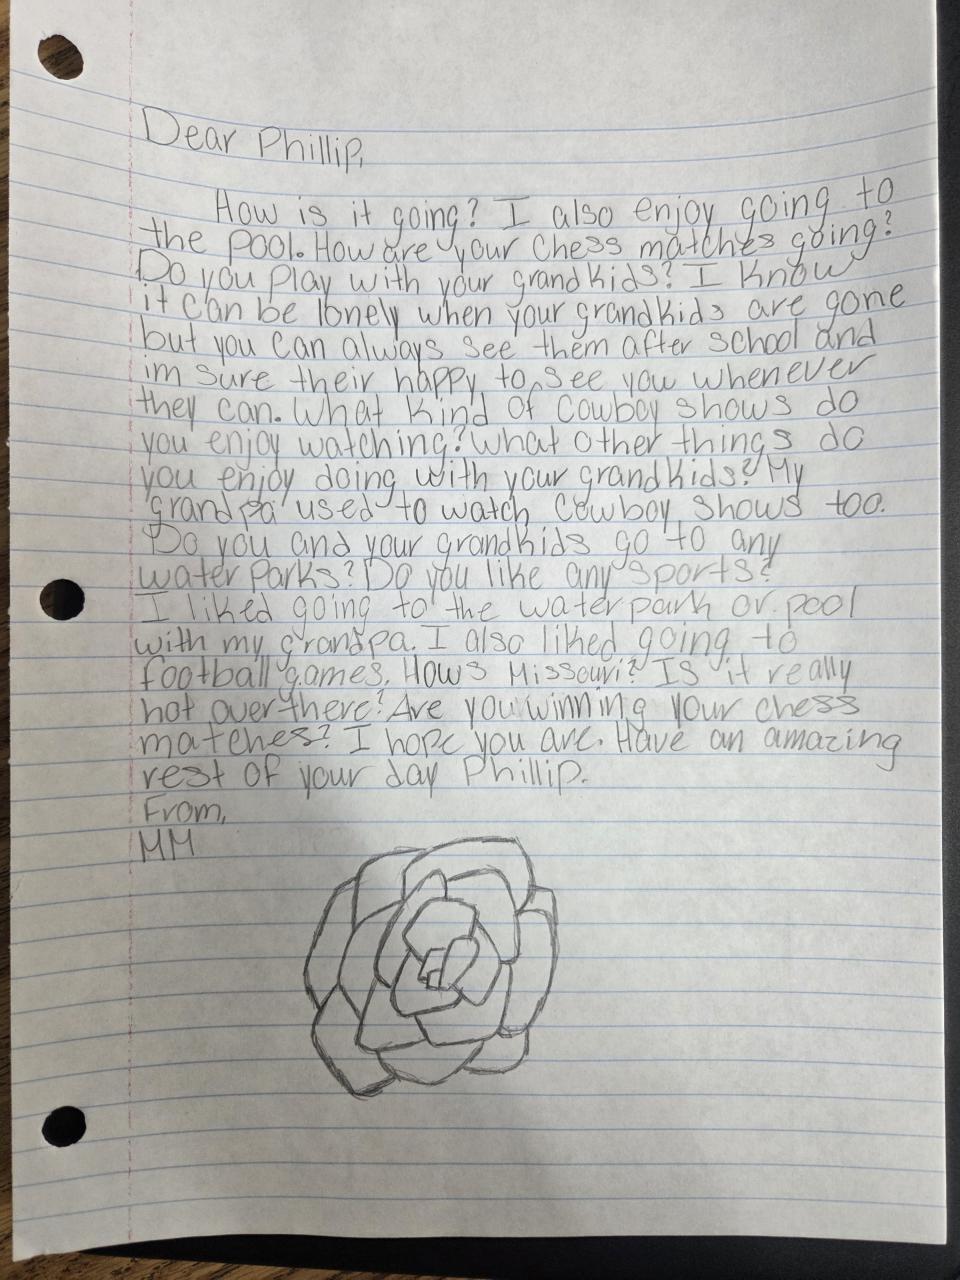 Dear Phillip,
How is it going? I also enjoy going to
the pool. How are your chess matches going?
Do you play with your grandkids? I know
it can be lonely when your grandkids are gone
but you can always see them after school and
im sure their happy to see you whenever
they can. What kind of cowboy shows do
you enjoy watching? What other things do
you enjoy doing with your grandkids? My
grandpa used to watch cowboy shows too.
Do you and your grandkids go to any
water parks? Do you like any sports?
I liked going to the water park or pool
with my grandpa. I also liked going to
football games. Hows Missouri? Is it really
hot over there? Are you winning your chess
matches? I hope you are. Have an amazing
rest of your day Phillip.
From,
MM